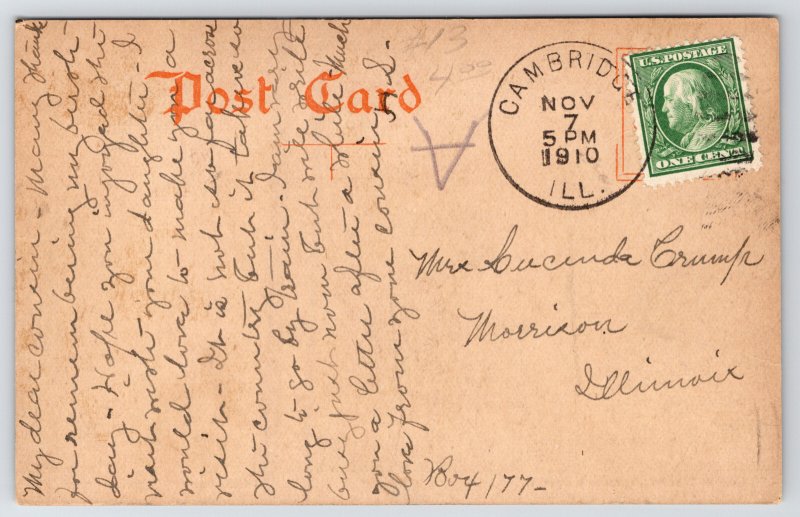 Post Card
#13
4.00
CAMBRIDGE
NOV
7
5 PM
1910
ILL.
U.S. POSTAGE
ONE CENT
My dear cousin - Many thanks
for remembering my birth
day - Hope you injoyed the
visit with your daughter - I
would love to make you a
visit - It is not so far across
the country but it takes so
long to go by train. I am very
busy just now but will write
you a letter after a while - Much
love from your cousin
Mrs Lucinda Crump
Morrison
Illinois
Box 177-